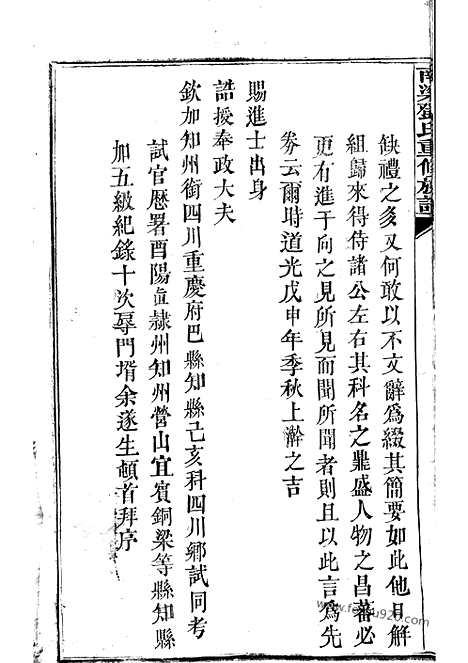 南梁鄧氏重修族譜
缺禮之多又何敢以不文辭爲綴其簡要如此他日解
組歸來得侍諸公左右其科名之鼎盛人物之昌蕃必
更有進于向之見所見而聞所聞者則且以此言爲先
券云爾時道光戊申年季秋上澣之吉
賜進士出身
誥授奉政大夫
欽加知州銜四川重慶府巴縣知縣己亥科四川鄉試同考
試官歷署酉陽直隸州知州營山宜賓銅梁等縣知縣
加五級紀錄十次辱門壻余遂生頓首拜序